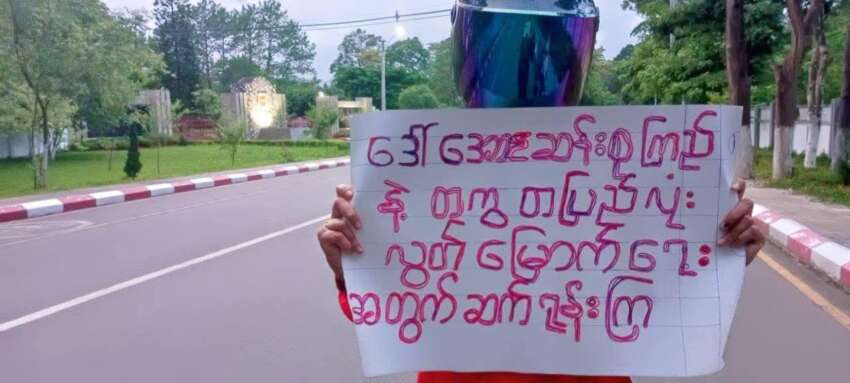 ဒေါ်အောင်ဆန်းစုကြည်
နဲ့ တကွ တပြည်လုံး
လွတ်မြောက်ရေး
အတွက် ဆက်ရုန်းကြ